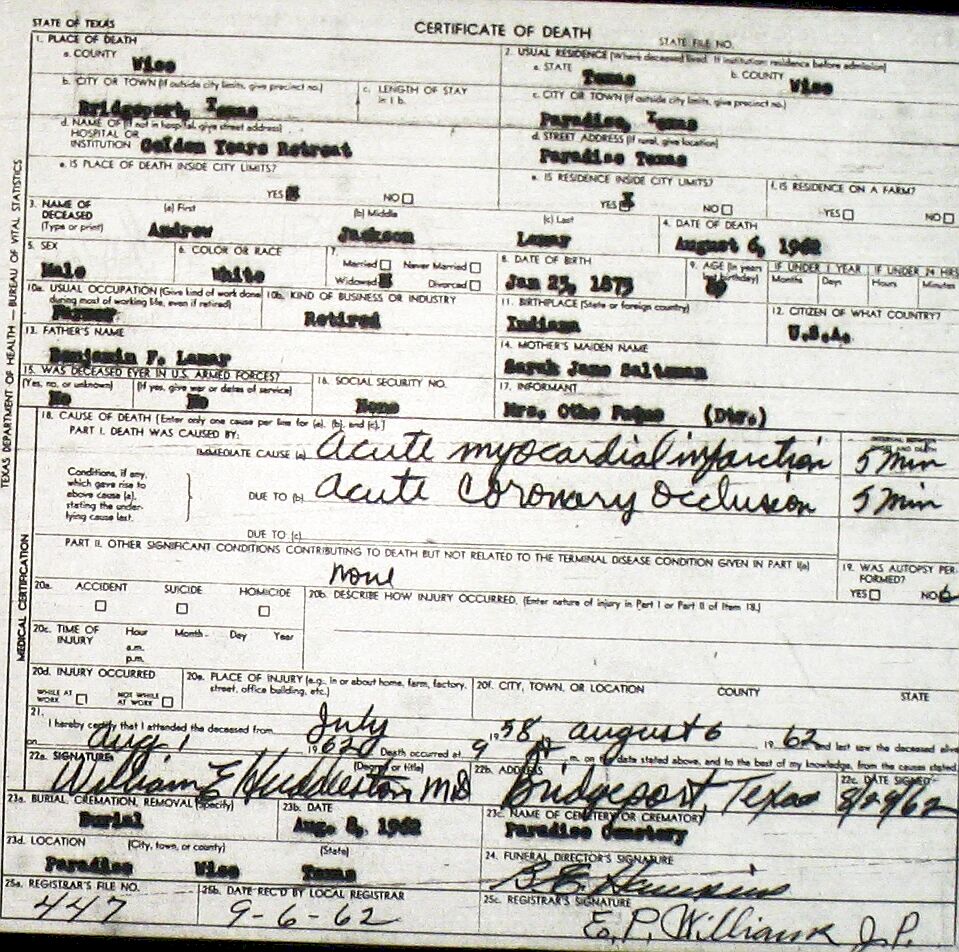 STATE OF TEXAS
CERTIFICATE OF DEATH
STATE FILE NO.
TEXAS DEPARTMENT OF HEALTH — BUREAU OF VITAL STATISTICS
1. PLACE OF DEATH
a. COUNTY
Wise
2. USUAL RESIDENCE (Where deceased lived. If institution: residence before admission)
a. STATE
Texas
b. COUNTY
Wise
b. CITY OR TOWN (If outside city limits, give precinct no.)
Bridgeport, Texas
c. LENGTH OF STAY
in 1 b.
c. CITY OR TOWN (If outside city limits, give precinct no.)
Paradise, Texas
d. NAME OF (If not in hospital, give street address)
HOSPITAL OR
INSTITUTION Golden Years Retreat
d. STREET ADDRESS (If rural, give location)
Paradise Texas
e. IS PLACE OF DEATH INSIDE CITY LIMITS?
YES X NO
e. IS RESIDENCE INSIDE CITY LIMITS?
YES X NO
f. IS RESIDENCE ON A FARM?
YES NO
3. NAME OF
DECEASED
(Type or print)
(a) First
Andrew
(b) Middle
Jackson
(c) Last
Lamar
4. DATE OF DEATH
August 6, 1962
5. SEX
Male
6. COLOR OR RACE
White
7.
Married Never Married
Widowed X Divorced
8. DATE OF BIRTH
Jan 25, 1873
9. AGE (In years
last birthday)
IF UNDER 1 YEAR
Months Days
IF UNDER 24 HRS
Hours Minutes
10a. USUAL OCCUPATION (Give kind of work done
during most of working life, even if retired)
Farmer
10b. KIND OF BUSINESS OR INDUSTRY
Retired
11. BIRTHPLACE (State or foreign country)
Indiana
12. CITIZEN OF WHAT COUNTRY?
U.S.A.
13. FATHER'S NAME
Benjamin F. Lamar
14. MOTHER'S MAIDEN NAME
Sarah Jane Saltsman
15. WAS DECEASED EVER IN U.S. ARMED FORCES?
(Yes, no, or unknown)
No
(If yes, give war or dates of service)
No
16. SOCIAL SECURITY NO.
None
17. INFORMANT
Mrs. Otho Payne (Dtr.)
MEDICAL CERTIFICATION
18. CAUSE OF DEATH [Enter only one cause per line for (a), (b), and (c).]
PART I. DEATH WAS CAUSED BY:
IMMEDIATE CAUSE (a) Acute myocardial infarction 5 Min
Conditions, if any,
which gave rise to
above cause (a),
stating the under-
lying cause last.
DUE TO (b) Acute Coronary Occlusion 5 Min
DUE TO (c)
PART II. OTHER SIGNIFICANT CONDITIONS CONTRIBUTING TO DEATH BUT NOT RELATED TO THE TERMINAL DISEASE CONDITION GIVEN IN PART I(a)
none
19. WAS AUTOPSY PER-
FORMED?
YES NO
20a. ACCIDENT SUICIDE HOMICIDE
20b. DESCRIBE HOW INJURY OCCURRED. (Enter nature of injury in Part I or Part II of Item 18.)
20c. TIME OF
INJURY
Hour Month Day Year
a.m.
p.m.
20d. INJURY OCCURRED
WHILE AT
WORK
NOT WHILE
AT WORK
20e. PLACE OF INJURY (e.g., in or about home, farm, factory,
street, office building, etc.)
20f. CITY, TOWN, OR LOCATION COUNTY STATE
21.
I hereby certify that I attended the deceased from July 19 58, August 6 19 62 and last saw the deceased alive
on Aug 1 19 62. Death occurred at 9 m. on the date stated above, and to the best of my knowledge, from the causes stated.
22a. SIGNATURE (Degree or title)
William E Huddleston MD
22b. ADDRESS
Bridgeport, Texas
22c. DATE SIGNED
8/29/62
23a. BURIAL, CREMATION, REMOVAL (Specify)
Burial
23b. DATE
Aug. 8, 1962
23c. NAME OF CEMETERY OR CREMATORY
Paradise Cemetery
23d. LOCATION (City, town, or county) (State)
Paradise Wise Texas
24. FUNERAL DIRECTOR'S SIGNATURE
25a. REGISTRAR'S FILE NO.
447
25b. DATE REC'D BY LOCAL REGISTRAR
9-6-62
25c. REGISTRAR'S SIGNATURE
E. P. Williams J P